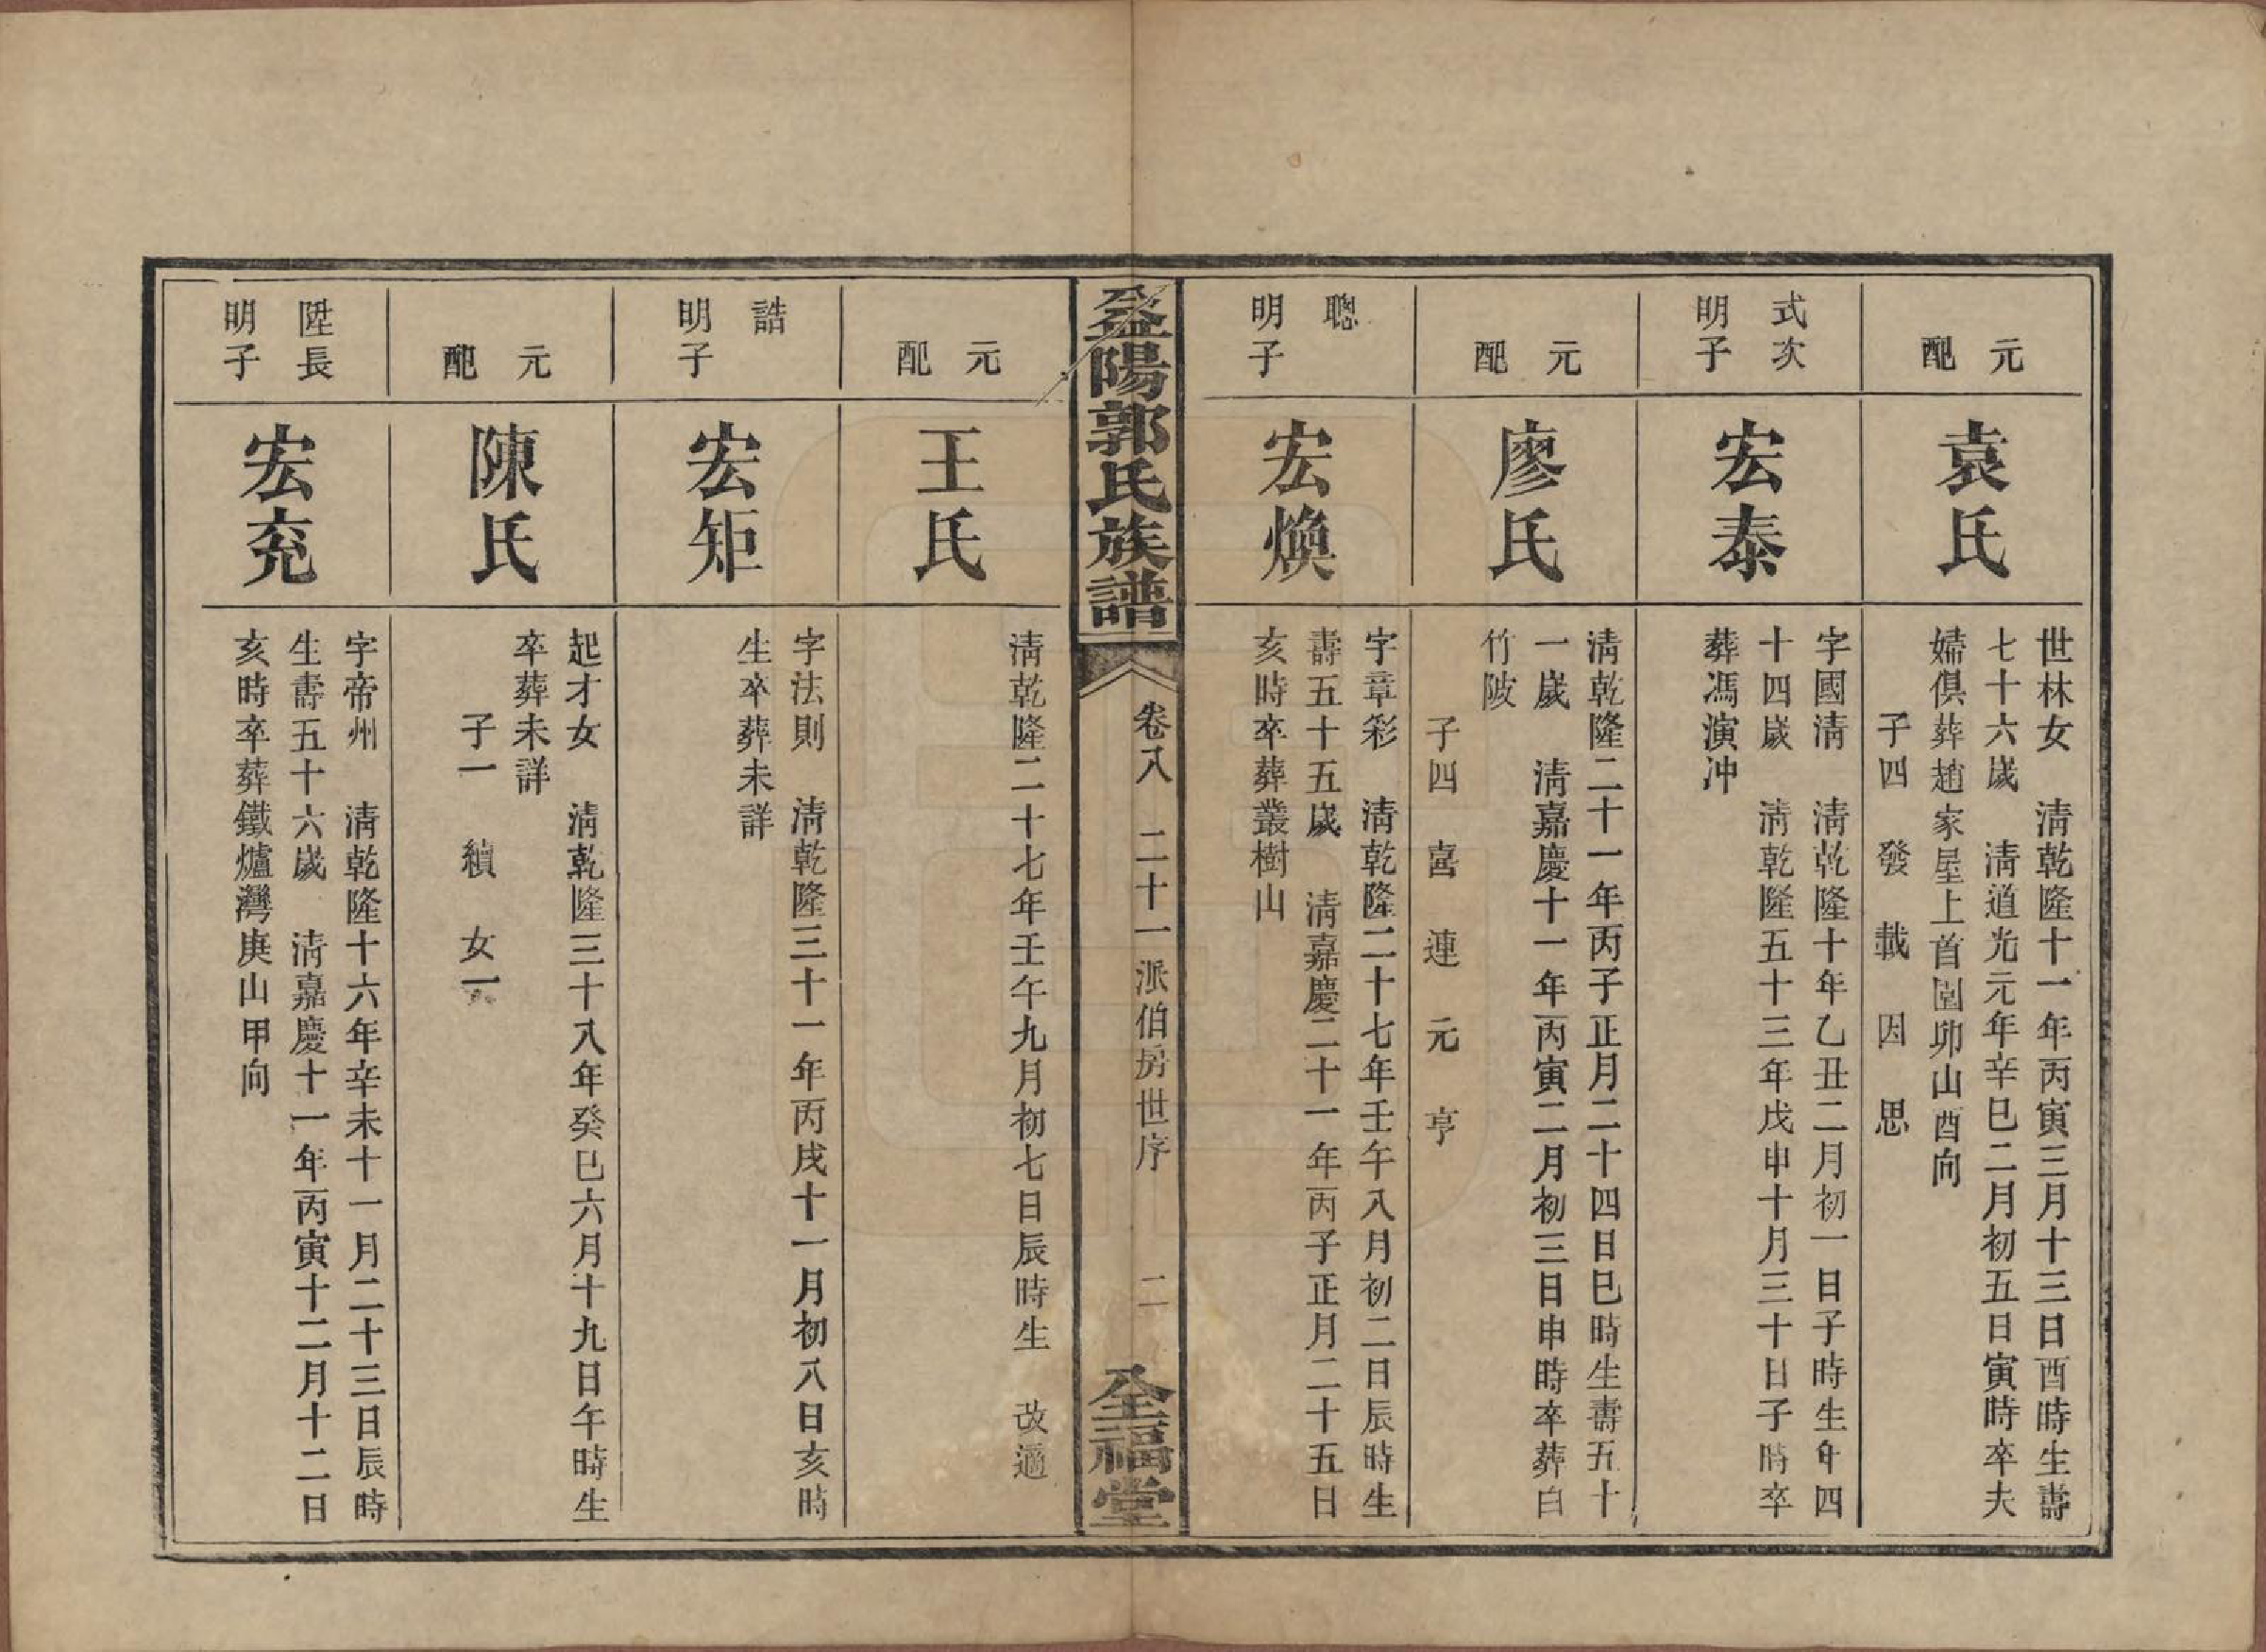 元
配
袁氏
世林女　清乾隆十一年丙寅三月十三日酉時生壽
七十六歲　清道光元年辛巳二月初五日寅時卒夫
婦俱葬趙家屋上首園卯山酉向
子四　發　載　因　思
式次
明子
宏泰
字國清　清乾隆十年乙丑二月初一日子時生年四
十四歲　清乾隆五十三年戊申十月三十日子時卒
葬馮演冲
元
配
廖氏
清乾隆二十一年丙子正月二十四日巳時生壽五十
一歲　清嘉慶十一年丙寅二月初三日申時卒葬白
竹陂
子四　喜　連　元　亨
聰
明子
宏煥
字章彩　清乾隆二十七年壬午八月初二日辰時生
壽五十五歲　清嘉慶二十一年丙子正月二十五日
亥時卒葬叢樹山
益陽郭氏族譜
卷八　二十一派伯房世序　二
全福堂
元
配
王氏
清乾隆二十七年壬午九月初七日辰時生　改適
誥
明子
宏矩
字法則　清乾隆三十一年丙戌十一月初八日亥時
生卒葬未詳
元
配
陳氏
起才女　清乾隆三十八年癸巳六月十九日午時生
卒葬未詳
子一　續　女一
陞長
明子
宏兖
字帝州　清乾隆十六年辛未十一月二十三日辰時
生壽五十六歲　清嘉慶十一年丙寅十二月十二日
亥時卒葬鐵爐灣庚山甲向